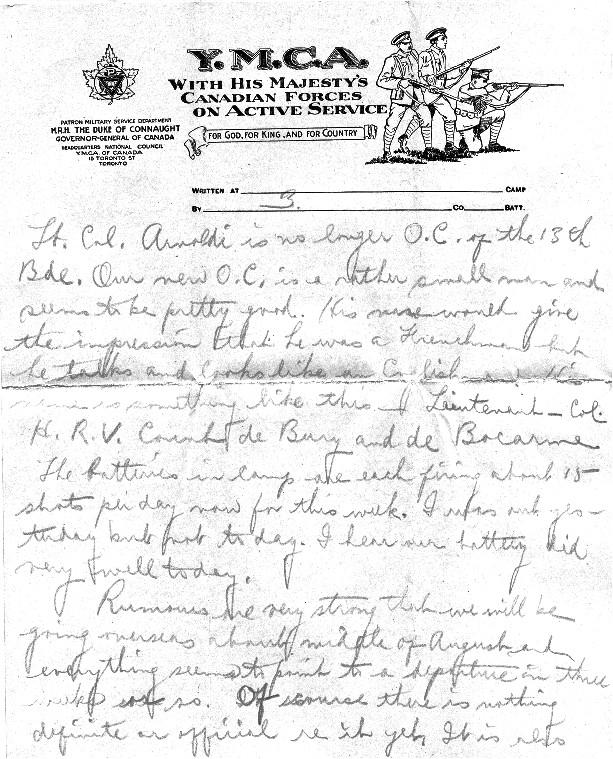 Y.M.C.A.
WITH HIS MAJESTY'S
CANADIAN FORCES
ON ACTIVE SERVICE
FOR GOD, FOR KING, AND FOR COUNTRY
PATRON MILITARY SERVICE DEPARTMENT
H.R.H. THE DUKE OF CONNAUGHT
GOVERNOR-GENERAL OF CANADA
HEADQUARTERS NATIONAL COUNCIL
Y.M.C.A. OF CANADA
15 TORONTO ST
TORONTO
WRITTEN AT CAMP
BY 3. CO. BATT.
Lt. Col. Arnoldi is no longer O.C. of the 13th
Bde. Our new O.C. is a rather small man and
seems to be pretty good. His name would give
the impression that he was a Frenchman but
he talks and looks like an Englishman. His
name is something like this – Lieutenant-Col.
H. R. V. Count de Bury and de Bocarme
The batteries in camp are each firing about 15
shots per day now for this week. I was out yes-
terday but not today. I hear our battery did
very well today.
Rumours are very strong that we will be
going overseas about middle of August and
everything seems to point to a departure in three
weeks or so. Of course there is nothing
definite or official re it yet. It is also